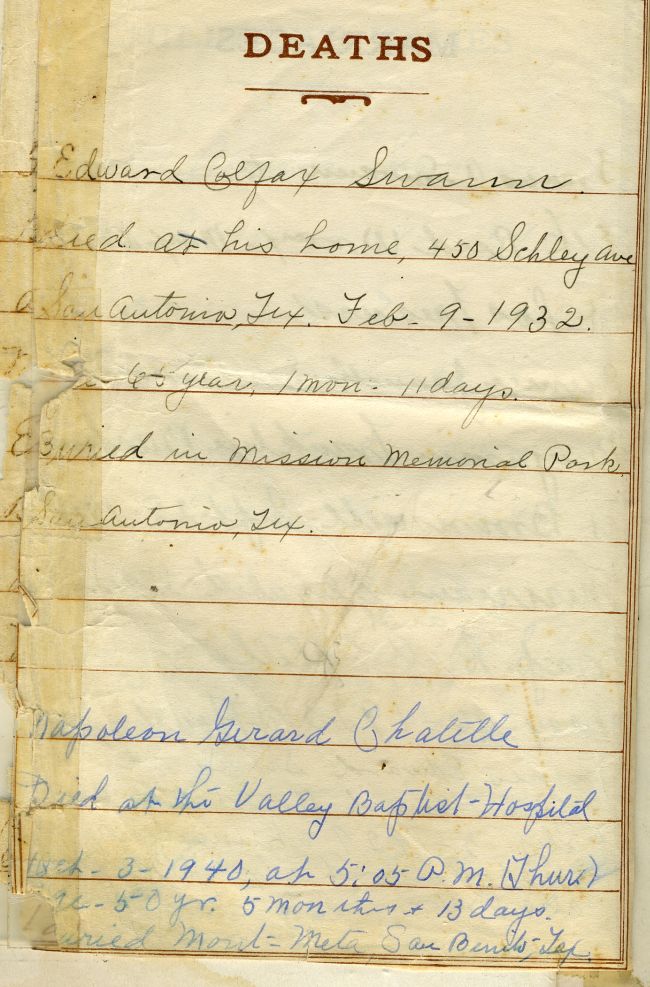 DEATHS
Edward Colfax Swann.
Died at his home, 450 Schley Ave
San Antonio, Tex. Feb - 9 - 1932.
65 year, 1 mon - 11 days.
Buried in Mission Memorial Park,
San Antonio, Tex.
Napoleon Girard Chatelle
Died at the Valley Baptist Hospital
Oct - 3 - 1940, at 5:05 P.M. (Thur)
Age - 50 yr. 5 months + 13 days.
Buried Mont-Meta, San Benito, Tex.